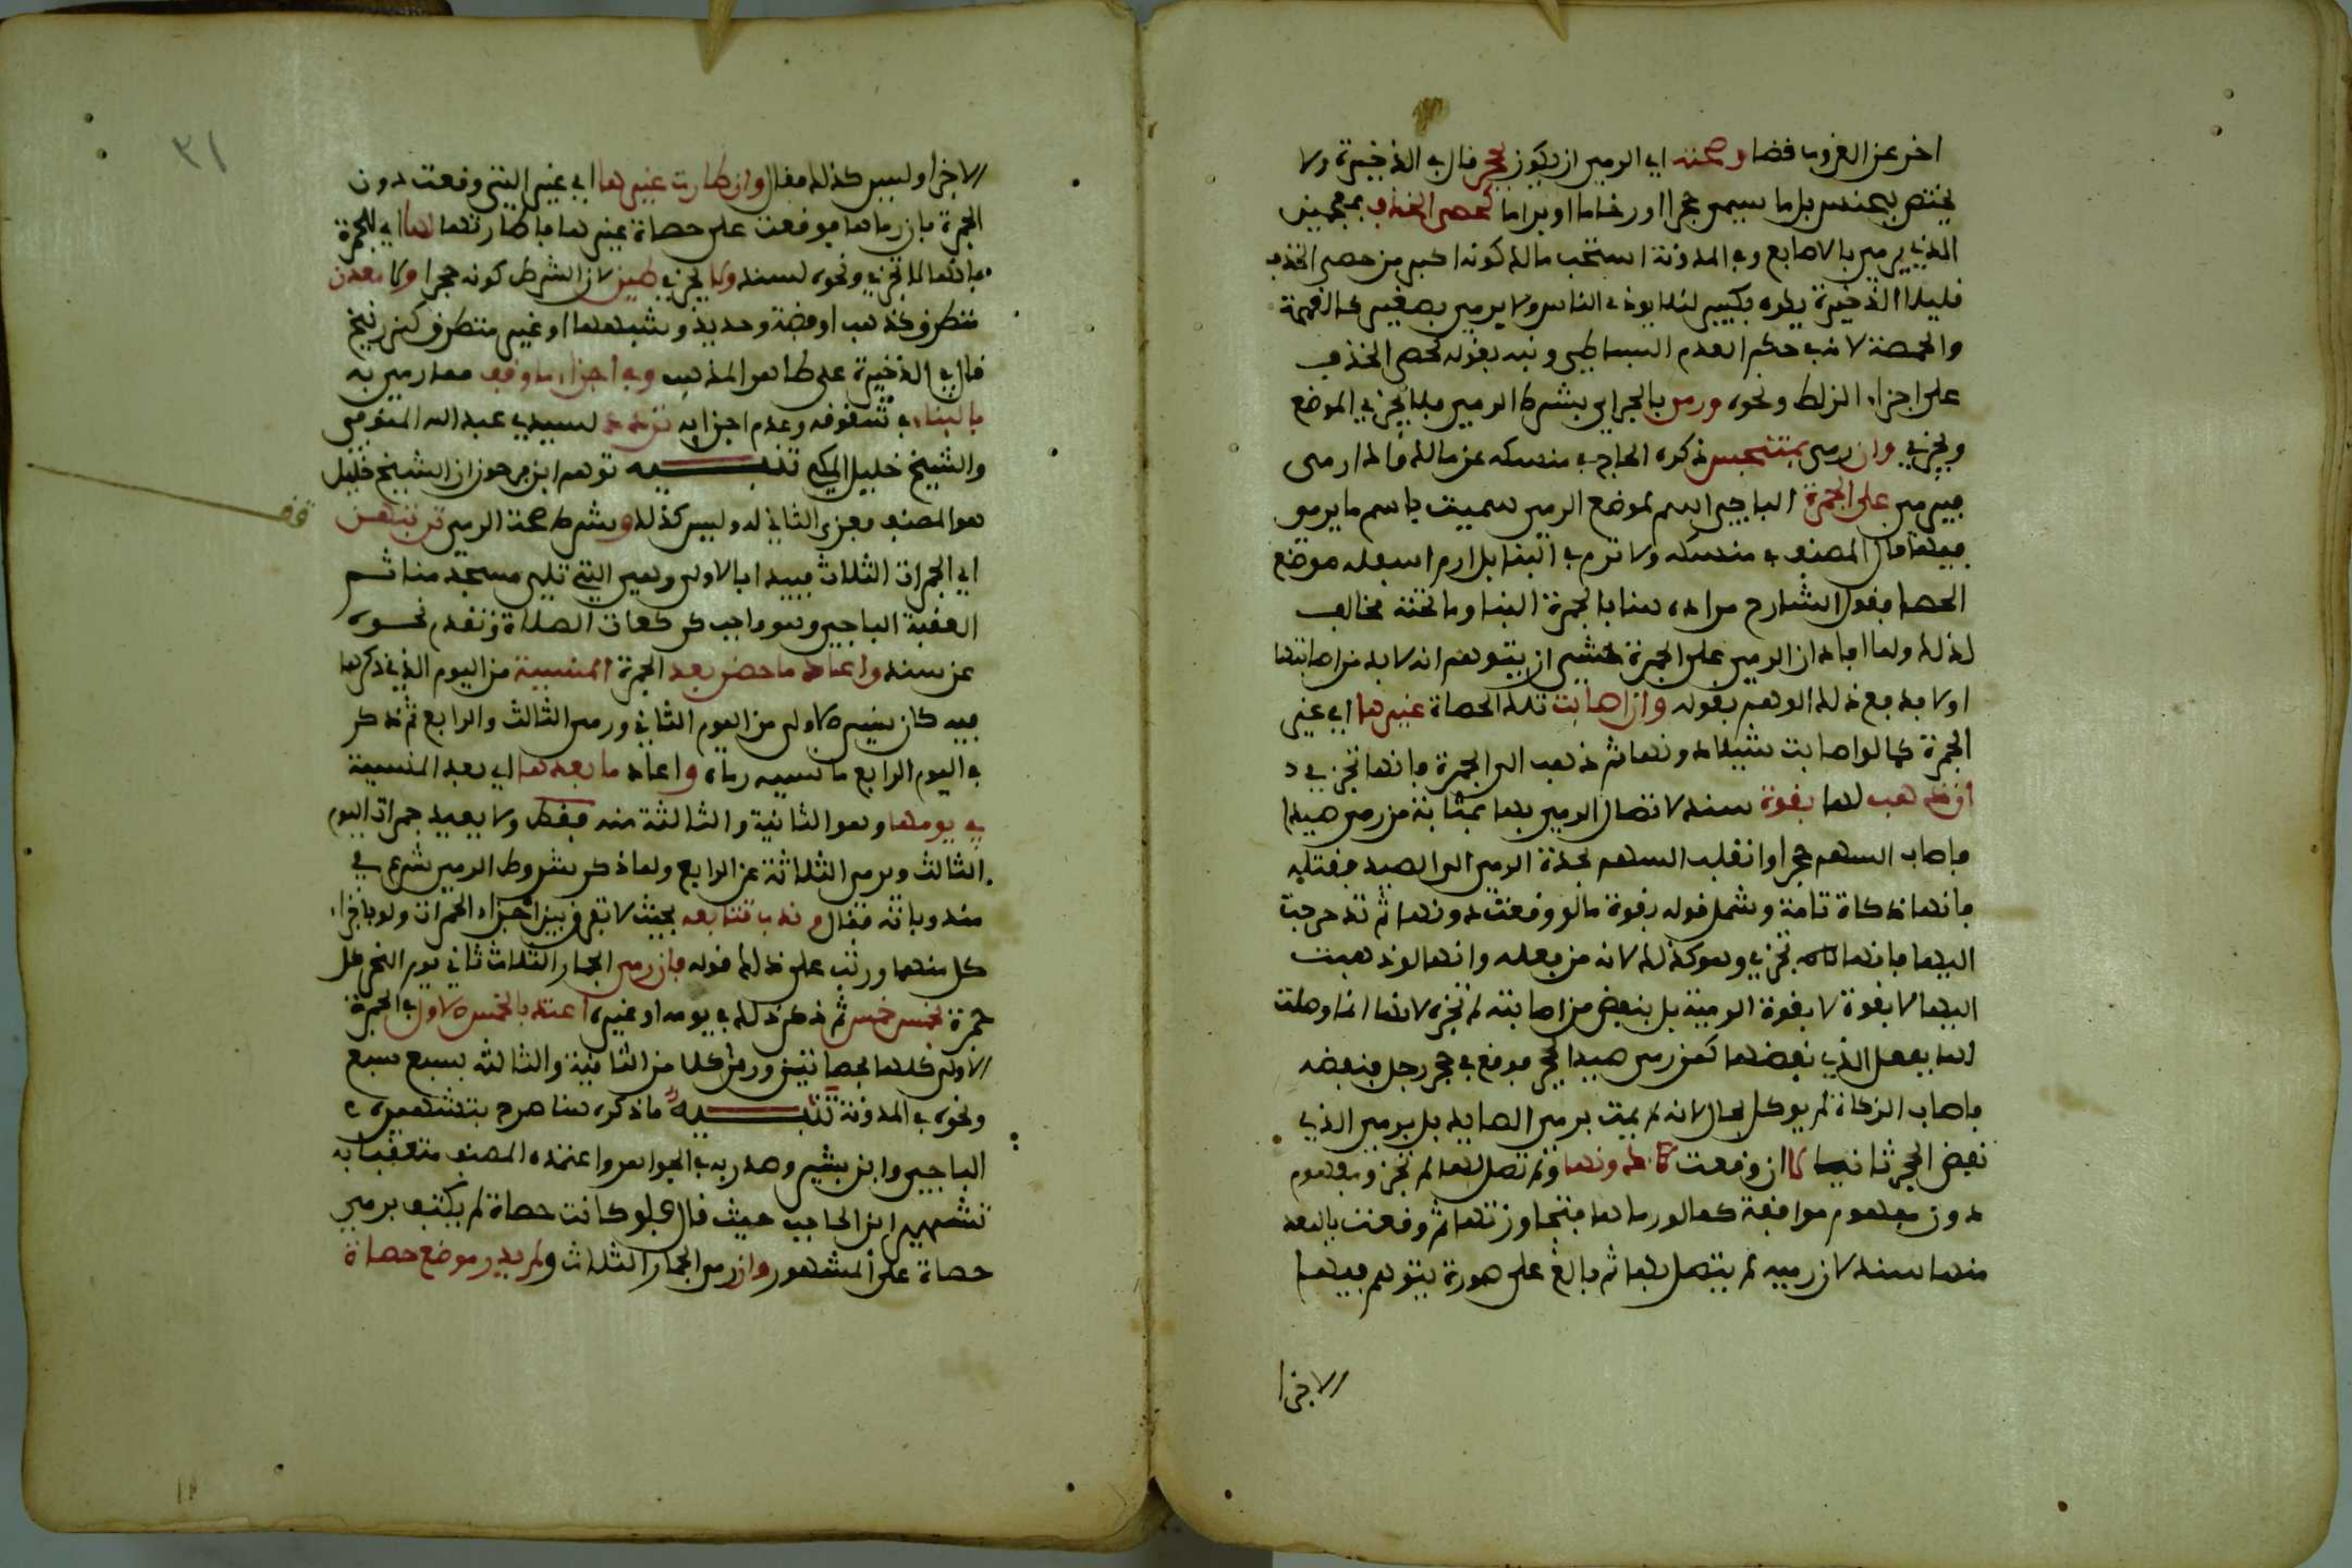 اخر عن الغروب قضا وصحته اي الرمي ان يكون بحجر قال في الذخيرة ولا
يختص بجنس بل ما يسمى حجرا او رخاما او براما كحصى الخذف بمعجمتين
الذي يرمى بالاصابع وفي المدونة استحب مالك كونه اكبر من حصى الخذف
قليلا الذخيرة يكره بكبير لئلا يوذي الناس ولا يرمي بصغير كالقمحة
والحمصة لانه في حكم العدم البساطي ونبه بقوله كحصى الخذف
على اجزاء الزلط ونحوه ورمي بالجر اي بشرط الرمي فلا يجزي الموضع
ويجزي وان رمى بمتنجس ذكره الحاج في منسكه عن مالك واذا رمى
فيرمي على الجمرة الباجي اسم لموضع الرمي سميت باسم ما يرمو
فيها قال المصنف في منسكه ولا ترم في البنا بل ارم اسفله موضع
الحصا فقول الشارح مراده هنا بالجمرة البنا وما تحته مخالف
لذلك ولما افاد ان الرمي على الجمرة خشي ان يتوهم انه لا بد من اصابتها
اولا فدفع ذلك الوهم بقوله وان اصابت تلك الحصاة غيرها اي غير
الجمرة كما لو اصابت شيئا دونها ثم ذهب الى الجمرة فانها تجزي
ان ذهب لها بقوة سند لاتصال الرمي بها بمثابة من رمى صيدا
فاصاب السهم حجرا وانقلب السهم بحدة الرمي الى الصيد فقتله
فانها ذكاة تامة وشمل قوله بقوة ما لو وقعت دونها ثم تدحرجت
اليها فانها تجزي وهو كذلك لانه من فعله وانها لو ذهبت
اليها لا بقوة لا بقوة الرمية بل بنفض من اصابته لم تجزه لانها انما وصلت
لها بفعل الذي نفضها كمن رمى صيدا بحجر فوقع في حجر رجل فنفضه
فاصاب الزكاة لم يوكل بحال لانه لم يمت برمي الصايد بل برمي الذي
نفض الحجر ثانيا لا ان وقعت دونها ولم تصل لها لم تجز ومفهوم
دون مفهوم موافقة كما لو رماها فتجاوزتها ثم وقعت بالبعد
منها سند لان رميه لم يتصل بها ثم بالغ على صورة يتوهم فيها
الاجزا
٣١
الاجزا وليس كذلك فقال وان طارت غيرها اي غير التي وقعت دون
الجمرة بان رماها فوقعت على حصاة غيرها فاطارتها لها اي للجمرة
فانها لا تجزي ونحوه لسند ولا يجزي طين لان الشرط كونه حجرا ولا معدن
متطرق كذهب او فضة وحديد وشبهها او غير متطرق كزرنيخ
قال في الذخيرة على ظاهر المذهب وفي اجزاء ما وقف مما رمي به
بالبناء في شقوقه وعدم اجزايه تردد لسيدي عبد الله المنوفي
والشيخ خليل المكي تنبيه توهم ابن فرحون ان الشيخ خليل
هو المصنف فعزى الثاني له وليس كذلك وبشرط صحة الرمي ترتبهن
اي الجمرات الثلاث فيبدا بالاولى وهي التي تلي مسجد منا ثم
العقبة الباجي وهو واجب كركعات الصلاة وتقدم نحوه
عن سند واعاد ما حضر بعد الجمرة المنسية من اليوم الذي ذكرها
فيه كان ينسى الاولى من اليوم الثاني ورمى الثالث والرابع ثم ذكر
في اليوم الرابع ما نسيه رماه واعاد ما بعدها اي بعد المنسية
في يومها وهو الثانية والثالثة منه فقط ولا يعيد جمرات اليوم
الثالث ويرمي الثلاثة عن الرابع ولما ذكر شروط الرمي شرع في
مندوباته فقال وندب تتابعه بحيث لا يفرق بين اجزاء الجمرات ولو باجزاء
كل منها ورتب على ذلك قوله فان رمى الجمار الثلاث ثاني يوم النحر كل
جمرة بخمس خمس ثم ذكر ذلك في يومه او غيره اعتد بالخمس الاول في الجمرة
الاولى كلها بحصاتين ورمى كلا من الثانية والثالثة بسبع سبع
ونحوه في المدونة تنبيه ما ذكره هنا صرح بتشهيره
الباجي وابن بشير وصدر به في الجواهر واعتمده المصنف متعقبا به
تشهير ابن الحاجب حيث قال فلو كانت حصاة لم يكتف برمي
حصاة على المشهور وان رمى الجمار الثلاث ولم يدر موضع حصاة